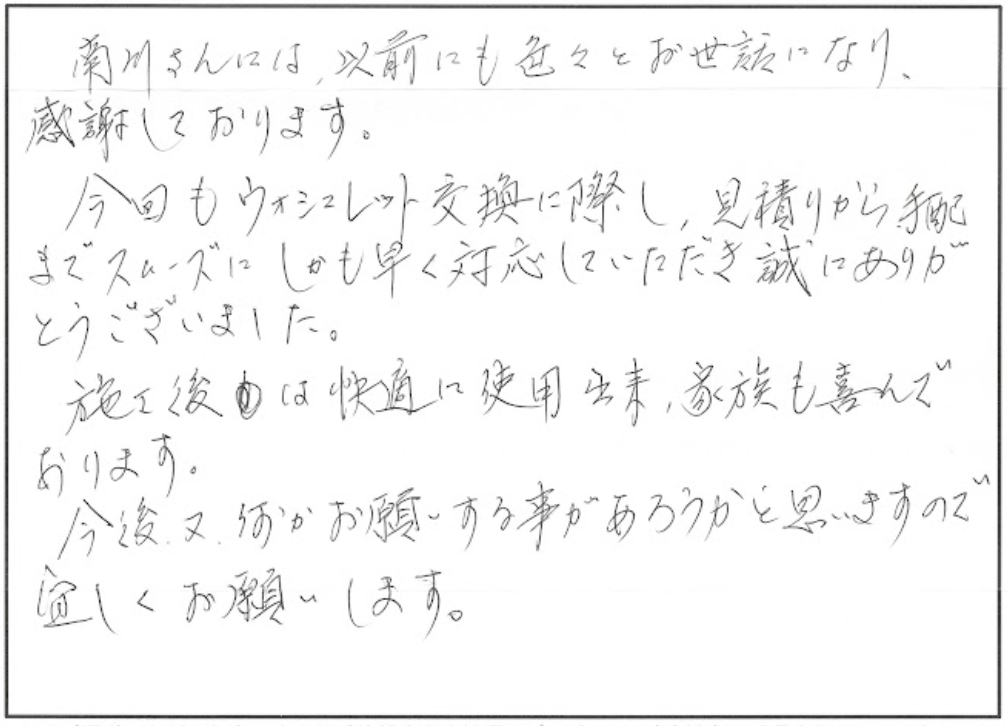 南川さんには、以前にも色々とお世話になり、
感謝しております。
今回もウォシュレット交換に際し、見積りから手配
までスムーズにしかも早く対応していただき誠にありが
とうございました。
施工後は快適に使用出来、家族も喜んで
おります。
今後、又、何かお願いする事があろうかと思いますので
宜しくお願いします。